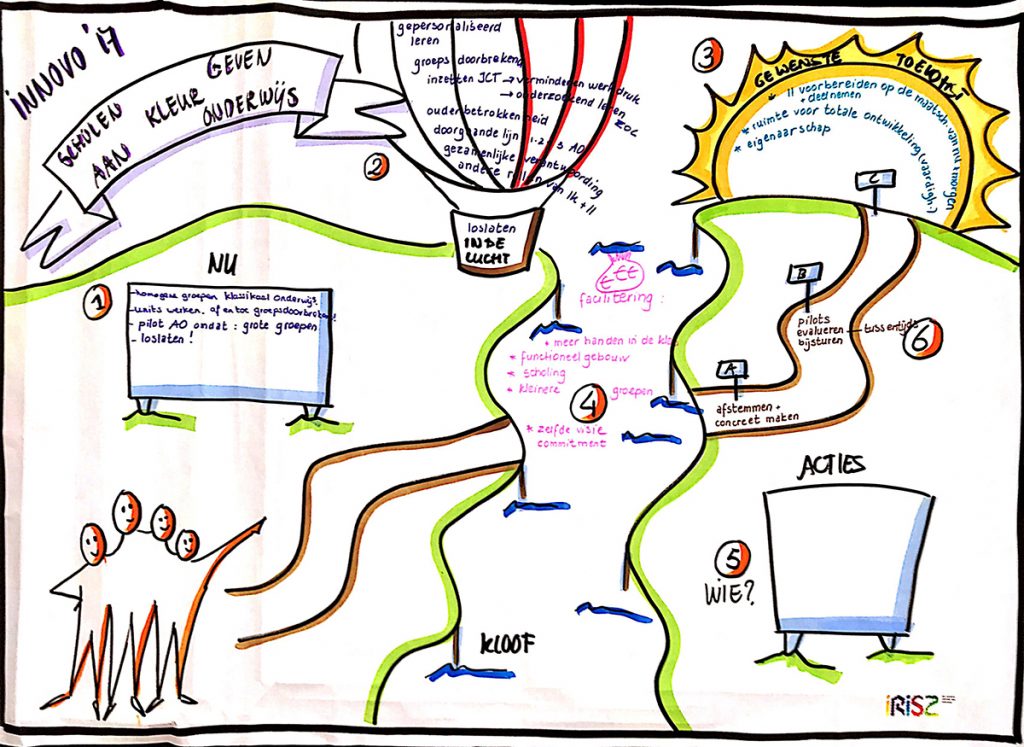 INNOVO '17
SCHOLEN GEVEN
AAN KLEUR
ONDERWIJS
1
NU
- homogene groepen klassikaal onderwijs.
- units werken. af en toe groepsdoorbrekend!
- pilot AO omdat : grote groepen
- loslaten !
2
gepersonaliseerd
leren
groeps doorbrekend
inzetten ICT → verminderen werkdruk
→ onderzoekend leren
ZOC
ouderbetrokkenheid
doorgaande lijn 1-2-3 AO
gezamenlijke verantwoording
andere rollen van lk + ll
loslaten
IN DE
LUCHT
3
GEWENSTE TOEKOMST
* ll voorbereiden op de maatsch. van nu + morgen
+ deelnemen
* ruimte voor totale ontwikkeling (vaardigh.)
* eigenaarschap
€€€
facilitering :
+ meer handen in de klas
* functioneel gebouw
* scholing
+ kleinere groepen
4
* zelfde visie
commitment
KLOOF
A
afstemmen +
concreet maken
B
pilots
evalueren — tussentijds
bijsturen
C
6
ACTIES
5
WIE?
iRiSZ